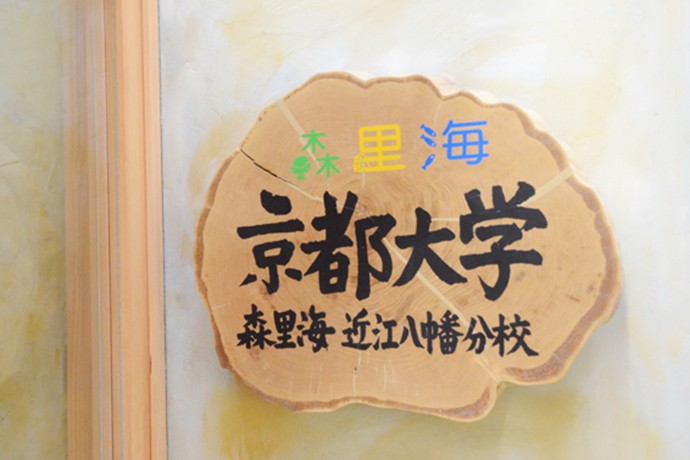 森里海
京都大学
森里海 近江八幡分校